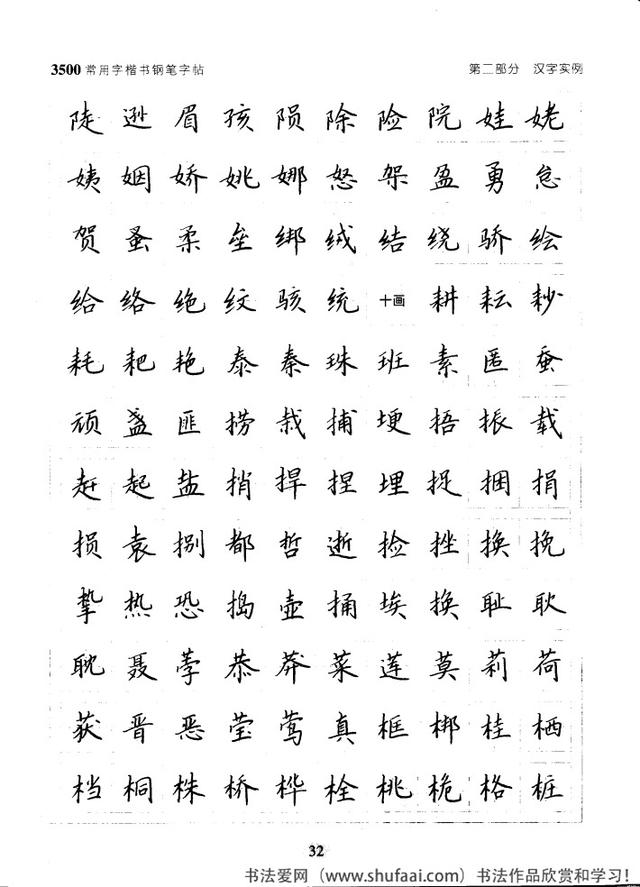 3500常用字楷书钢笔字帖 第二部分 汉字实例
陡逊眉孩陨除险院娃姥
姨姻娇姚娜怒架盈勇怠
贺蚤柔垒绑绒结绕骄绘
给络绝绞骇统十画耕耘耖
耗耙艳泰秦珠班素匿蚕
顽盏匪捞栽捕埂捂振载
赶起盐捎捍捏埋捉捆捐
损袁捌都哲逝捡挫换挽
挚热恐捣壶捅埃换耻耿
耽聂荸恭莽菜莲莫莉荷
获晋恶莹莺真框梆桂栖
档桐株桥桦栓桃桅格桩
32
书法爱网（www.shufaai.com）书法作品欣赏和学习！